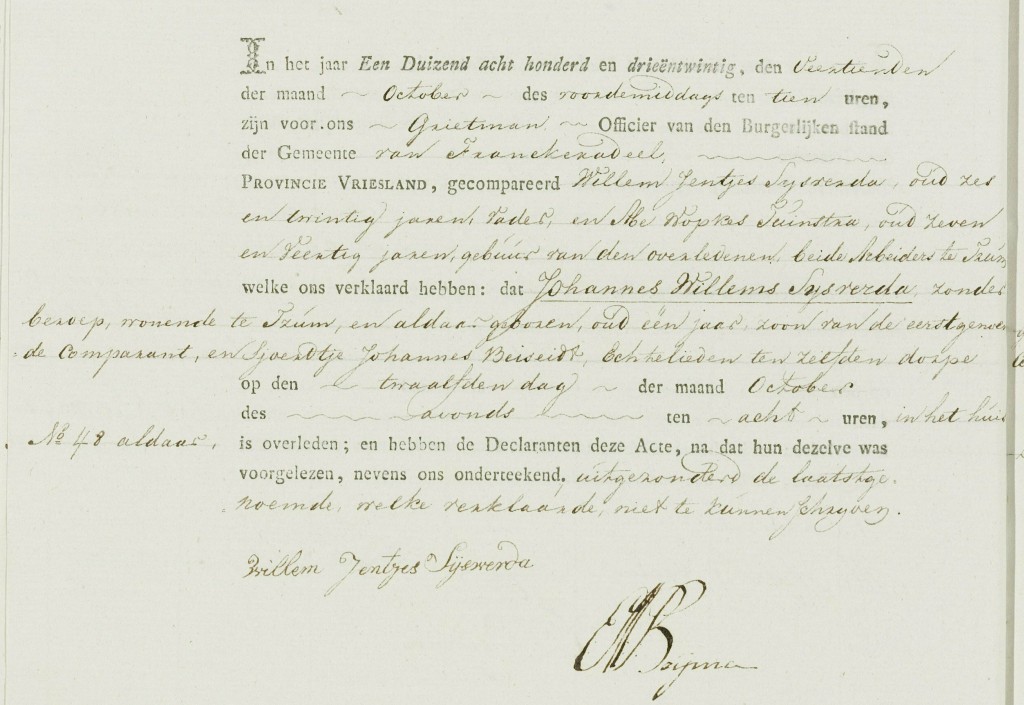 In het jaar Een Duizend acht honderd en drieëntwintig, den Veertienden
der maand ~ October ~ des voordemiddags ten tien uren,
zijn voor ons ~ Grietman ~ Officier van den Burgerlijken stand
der Gemeente van Franckeradeel,
PROVINCIE VRIESLAND, gecompareerd Willem Jentjes Sysverda, oud zes
en twintig jaren, Vader, en Abe Wopkes Tuinstra, oud zeven
en Veertig jaren, gebúúr van den overledenen, beide Arbeiders te Tzúm
welke ons verklaard hebben: dat Johannes Willems Sysverda, zonder
beroep, wonende te Tzúm, en aldaar geboren, oud één jaar, zoon van de eerstgenoem
de Comparant, en Sjoerdtje Johannes Beiseidt, Echtelieden ten zelfden dorpe
op den ~ twaalfden dag ~ der maand October
des ~ avonds ~ ten ~ acht ~ uren, in het húis
No 48 aldaar, is overleden; en hebben de Declaranten deze Acte, na dat hun dezelve was
voorgelezen, nevens ons onderteekend, uitgezonderd de laatstge-
noemde, welke verklaarde, niet te kúnnen schryven.
Willem Jentjes Sijswerda